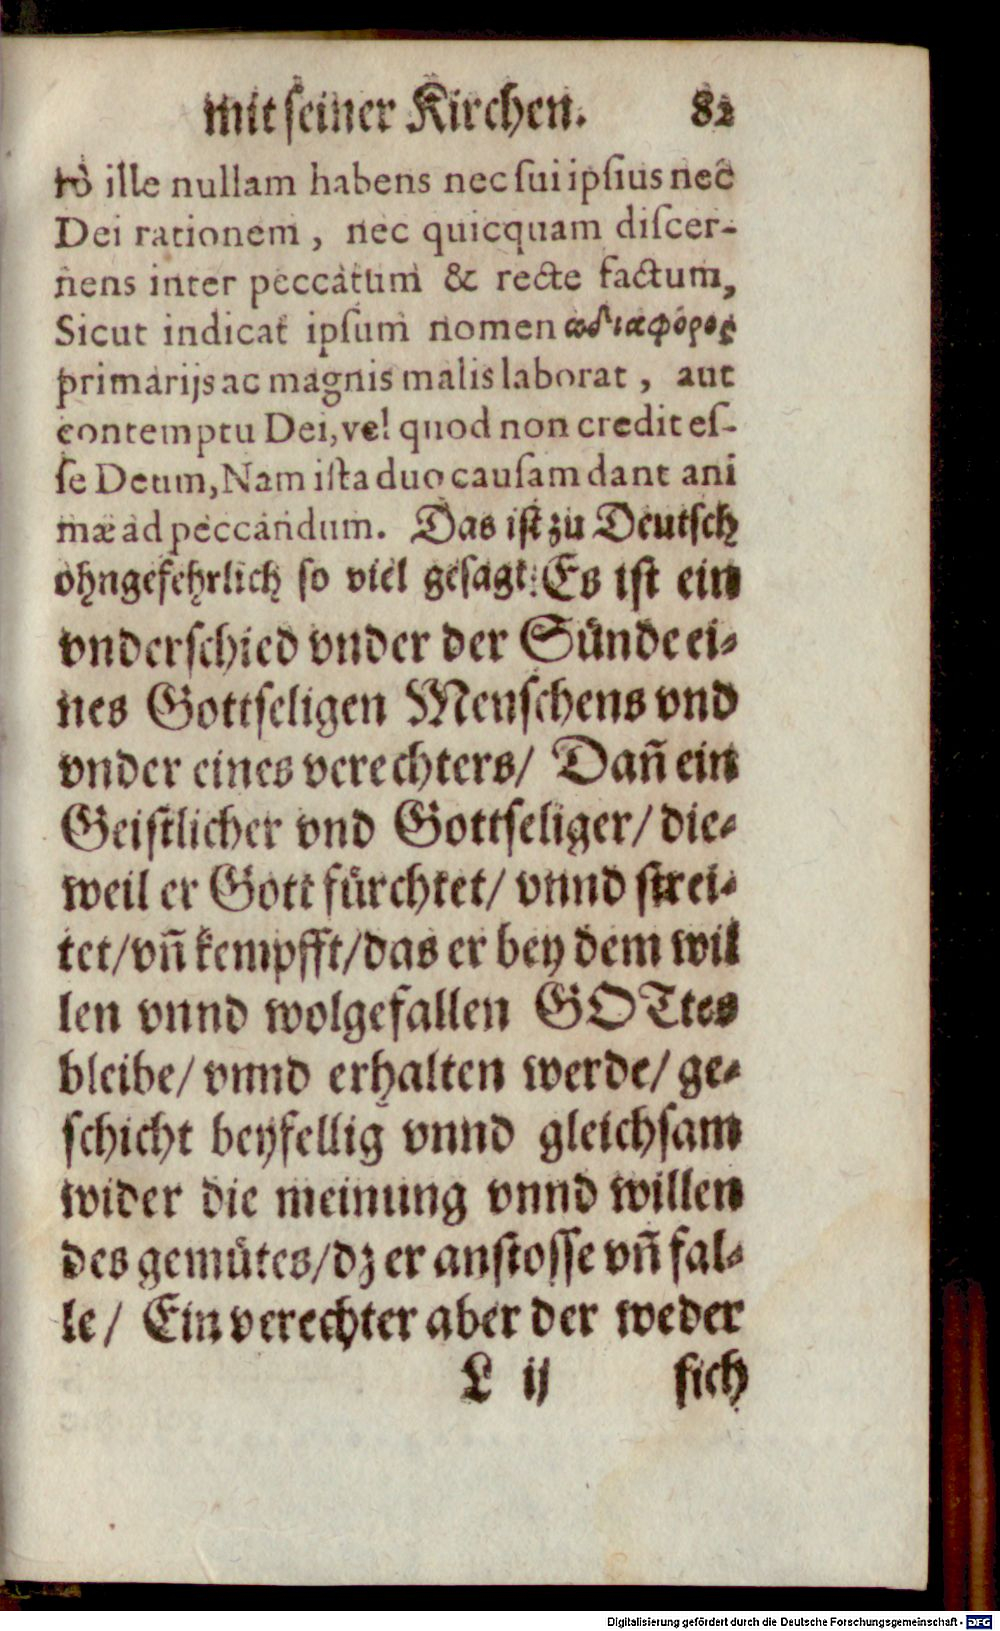 mit seiner Kirchen. 82
rò ille nullam habens nec sui ipsius nec
Dei rationem, nec quicquam discer-
nens inter peccatum & recte factum,
Sicut indicat ipsum nomen ἀδιαφόρος
primarijs ac magnis malis laborat, aut
contemptu Dei, vel quod non credit es-
se Deum, Nam ista duo causam dant ani
mæ ad peccandum. Das ist zu Deutsch
ohngefehrlich so viel gesagt: Es ist ein
vnderschied vnder der Sünde ei-
nes Gottseligen Menschens vnd
vnder eines verechters/ Dañ ein
Geistlicher vnd Gottseliger/ die-
weil er Gott fürchtet/ vnnd strei-
tet/ vñ kempfft/ das er bey dem wil
len vnnd wolgefallen GOTtes
bleibe/ vnnd erhalten werde/ ge-
schicht beyfellig vnnd gleichsam
wider die meinung vnnd willen
des gemütes/ dz er anstosse vñ fal-
le/ Ein verechter aber der weder
L ij sich
Digitalisierung gefördert durch die Deutsche Forschungsgemeinschaft - DFG